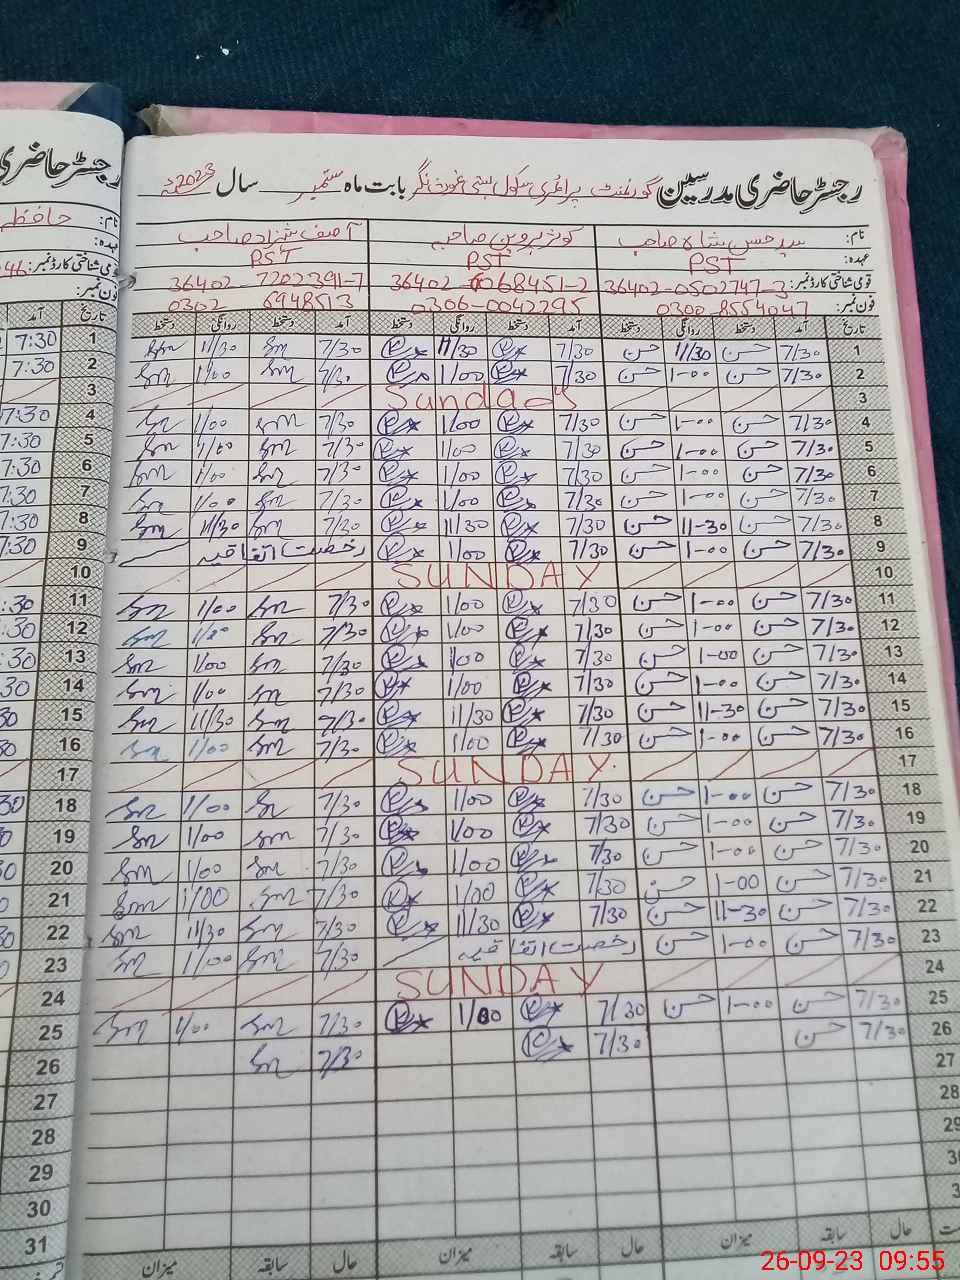 رجسٹر حاضری مدرسین گورنمنٹ پرائمری سکول بستی نگر بابت ماہ ستمبر سال 2023ء
نام: سید حسن شاہ صاحب کوثر پروین صاحبہ آصف شہزاد صاحب
عہدہ: PST PST PST
قومی شناختی کارڈ نمبر: 36402-0502747-3 36402-0068451-2 36402-7202391-7
فون نمبر: 0300-8554047 0306-0042295 0302 6948513
تاریخ آمد دستخط روانگی دستخط آمد دستخط روانگی دستخط آمد دستخط روانگی دستخط
1 7/30 حسن 11/30 حسن 7/30 11/30 7/30 11/30
2 7/30 حسن 1-00 حسن 7/30 1/00 7/30 1/00
3 Sundays
4 7/30 حسن 1-00 حسن 7/30 1/00 7/30 1/00
5 7/30 حسن 1-00 حسن 7/30 1/00 7/30 1/00
6 7/30 حسن 1-00 حسن 7/30 1/00 7/30 1/00
7 7/30 حسن 1-00 حسن 7/30 1/00 7/30 1/00
8 7/30 حسن 11-30 حسن 7/30 11/30 7/30 11/30
9 7/30 حسن 1-00 حسن 7/30 1/00 رخصت اتفاقیہ
10 SUNDAY
11 7/30 حسن 1-00 حسن 7/30 1/00 7/30 1/00
12 7/30 حسن 1-00 حسن 7/30 1/00 7/30 1/00
13 7/30 حسن 1-00 حسن 7/30 1/00 7/30 1/00
14 7/30 حسن 1-00 حسن 7/30 1/00 7/30 1/00
15 7/30 حسن 11-30 حسن 7/30 11/30 7/30 11/30
16 7/30 حسن 1-00 حسن 7/30 1/00 7/30 1/00
17 SUNDAY
18 7/30 حسن 1-00 حسن 7/30 1/00 7/30 1/00
19 7/30 حسن 1-00 حسن 7/30 1/00 7/30 1/00
20 7/30 حسن 1-00 حسن 7/30 1/00 7/30 1/00
21 7/30 حسن 1-00 حسن 7/30 1/00 7/30 1/00
22 7/30 حسن 11-30 حسن 7/30 11/30 7/30 11/30
23 7/30 حسن 1-00 حسن رخصت اتفاقیہ 7/30 1/00
24 SUNDAY
25 7/30 حسن 1-00 حسن 7/30 1/00 7/30 1/00
26 7/30 حسن 7/30 7/30
27
28
29
30
31
حال سابقہ میزان حال سابقہ میزان حال سابقہ میزان
رجسٹر حاضری
نام: حافظ
عہدہ:
قومی شناختی کارڈ نمبر:
فون نمبر:
تاریخ آمد
1 7:30
2 7:30
3
4 7:30
5 7:30
6 7:30
7 7:30
8 7:30
9 7:30
10
11 :30
12 :30
13 :30
14 30
15 30
16 30
17
18 30
19
20
21
22
23
24
25
26
27
28
29
30
31
26-09-23 09:55